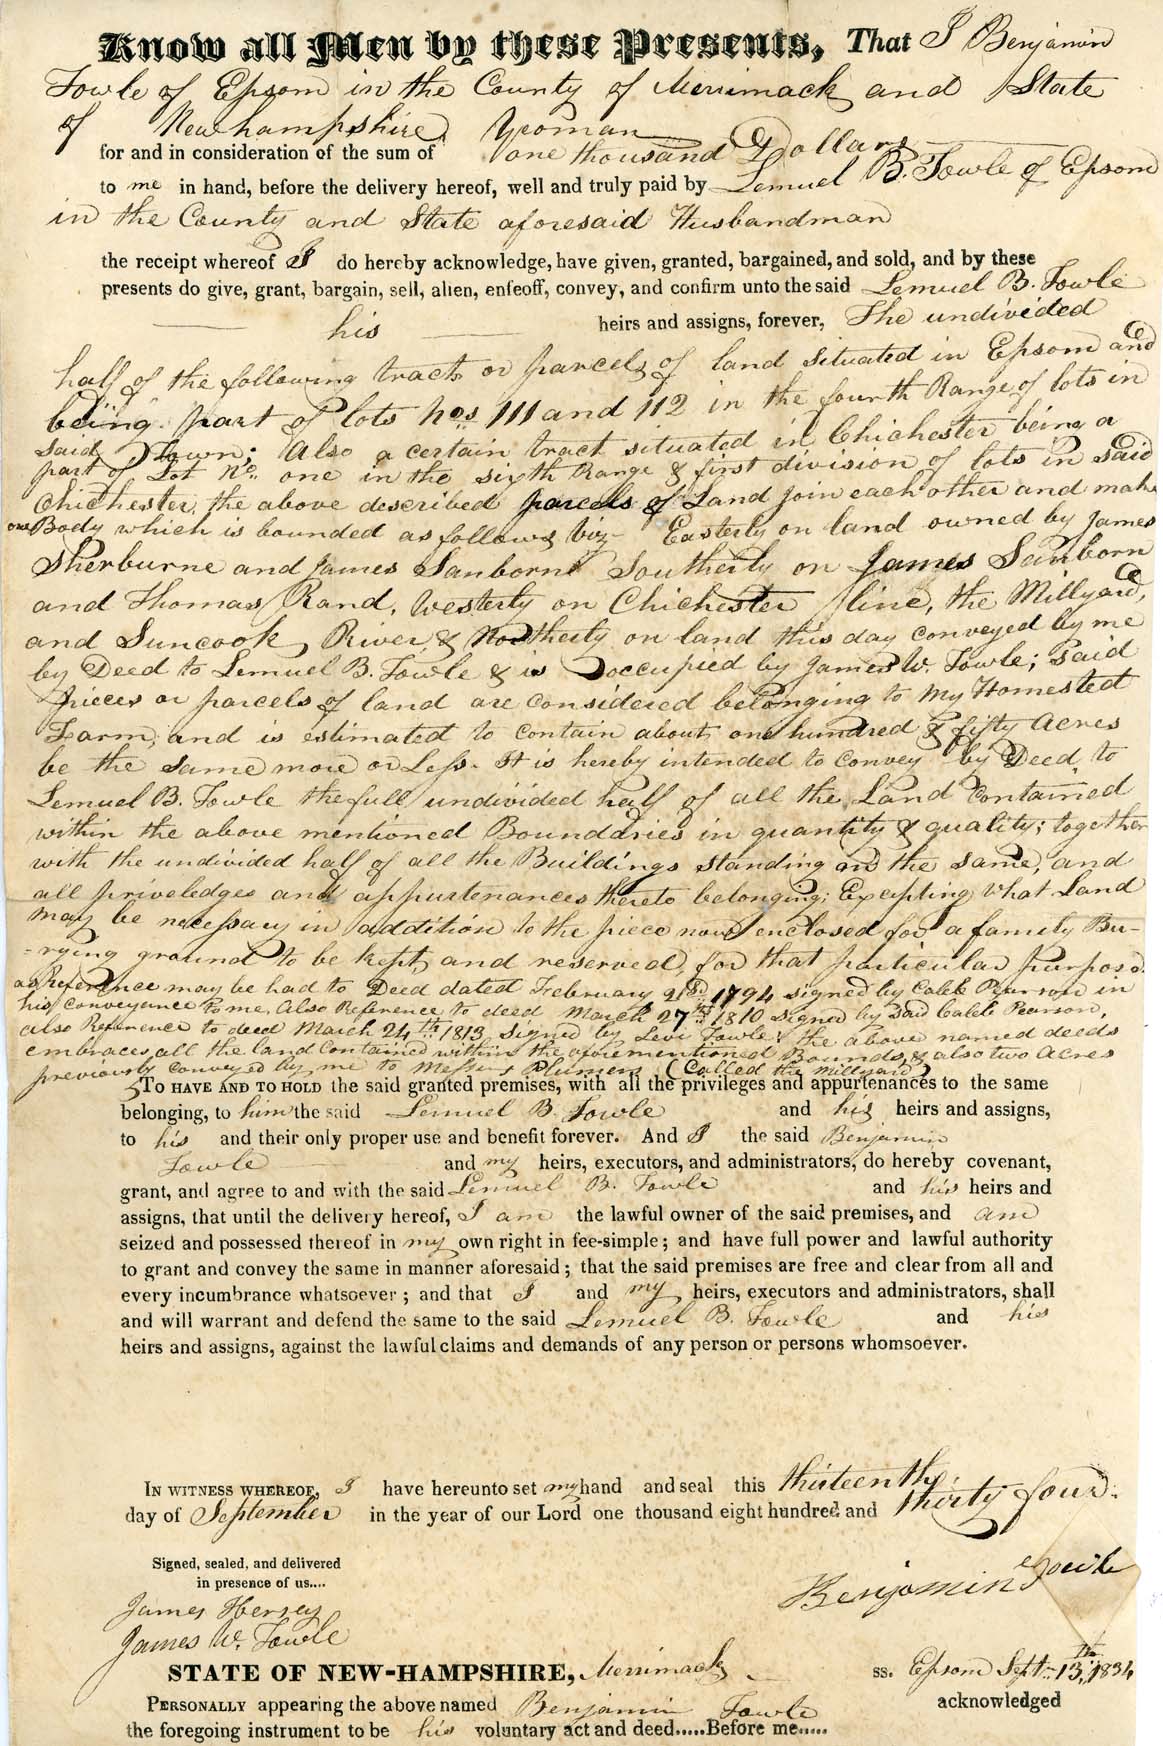 Know all Men by these Presents, That I Benjamin
Fowle of Epsom in the County of Merrimack and State
of Newhampshire Yeoman
for and in consideration of the sum of one thousand Dollars
to me in hand, before the delivery hereof, well and truly paid by Lemuel B. Fowle of Epsom
in the County and State aforesaid Husbandman
the receipt whereof I do hereby acknowledge, have given, granted, bargained, and sold, and by these
presents do give, grant, bargain, sell, alien, enfeoff, convey, and confirm unto the said Lemuel B. Fowle
his heirs and assigns, forever, The undivided
half of the following tracts or parcels of land situated in Epsom and
being part of lots Nos 111 and 112 in the fourth Range of lots in
said Town; Also a certain tract situated in Chichester being a
part of Lot No. one in the sixth Range & first division of lots in said
Chichester, the above described parcels of Land join each other and make
one Body which is bounded as follows Viz- Easterly on land owned by James
Sherburne and James Sanborn Southerly on James Sanborn
and Thomas Rand, Westerly on Chichester line, the Millyard,
and Suncook River, & Northerly on land this day conveyed by me
by Deed to Lemuel B. Fowle & is occupied by James W. Fowle; Said
pieces or parcels of land are considered belonging to My Homested
Farm, and is estimated to contain about one hundred & fifty Acres
be the same more or Less. It is hereby intended to convey by Deed to
Lemuel B. Fowle the full undivided half of all the Land contained
within the above mentioned Boundries in quantity & quality; together
with the undivided half of all the Buildings standing on the same, and
all priveledges and appurtenances thereto belonging; Excepting what Land
may be necessary in addition to the piece now enclosed for a family Bu-
-rying ground to be kept, and reserved, for that particular purpose.
as Reference may be had to Deed dated February 21st 1794 signed by Caleb Pearson in
his conveyance to me, Also Reference to deed March 27th 1810 signed by said Caleb Pearson,
also Reference to deed March 24th 1813 signed by Levi Fowle: the above named deeds
embraces all the land contained within the aforementioned Bounds, & also two Acres
previously conveyed by me to Messrs Plumers (Called the millyard)
To have and to hold the said granted premises, with all the privileges and appurtenances to the same
belonging, to him the said Lemuel B. Fowle and his heirs and assigns,
to his and their only proper use and benefit forever. And I the said Benjamin
Fowle and my heirs, executors, and administrators, do hereby covenant,
grant, and agree to and with the said Lemuel B. Fowle and his heirs and
assigns, that until the delivery hereof, I am the lawful owner of the said premises, and am
seized and possessed thereof in my own right in fee-simple; and have full power and lawful authority
to grant and convey the same in manner aforesaid; that the said premises are free and clear from all and
every incumbrance whatsoever; and that I and my heirs, executors and administrators, shall
and will warrant and defend the same to the said Lemuel B. Fowle and his
heirs and assigns, against the lawful claims and demands of any person or persons whomsoever.
In witness whereof, I have hereunto set my hand and seal this thirteenth
day of September in the year of our Lord one thousand eight hundred and thirty four.
Signed, sealed, and delivered
in presence of us....
Benjamin Fowle
James Hersey
James W. Fowle
STATE OF NEW-HAMPSHIRE, Merrimack ss. Epsom Sept. 13th, 1834
Personally appearing the above named Benjamin Fowle acknowledged
the foregoing instrument to be his voluntary act and deed.....Before me.....